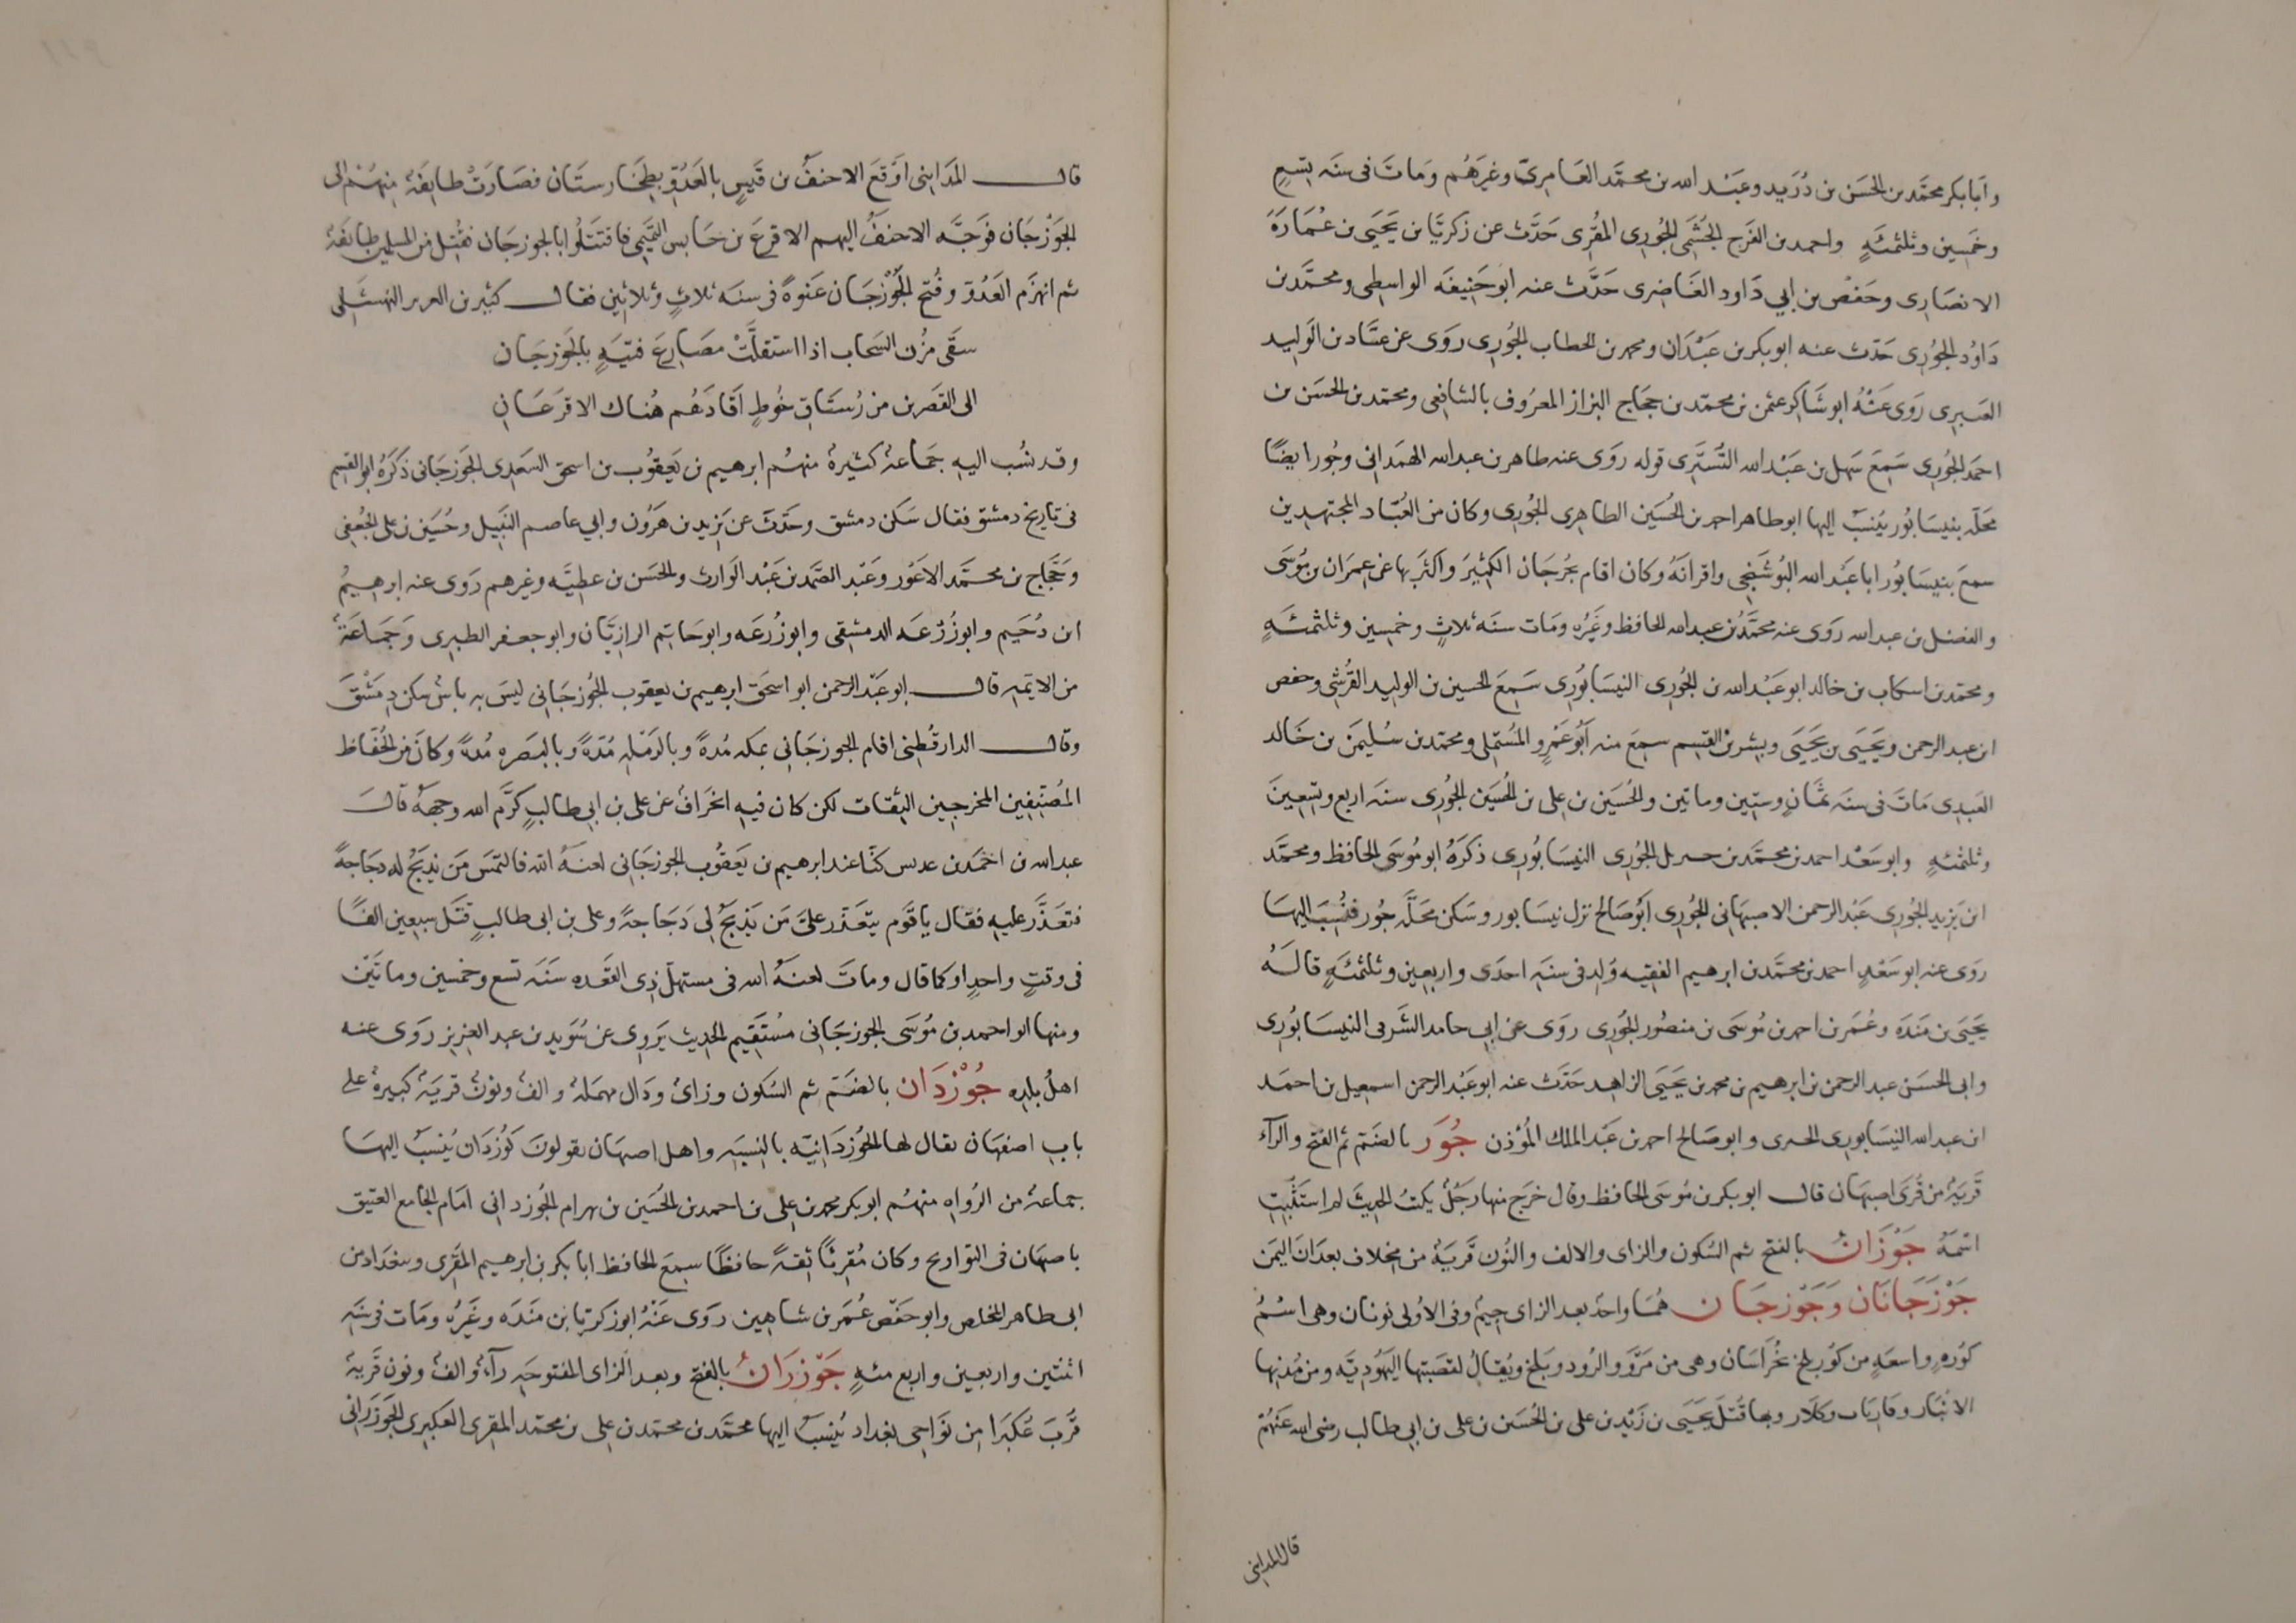 وأبا بكر محمد بن الحسن بن دريد وعبد الله بن محمد العامري وغيرهم ومات في سنه تسع
وخمسين وثلثمئة واحمد بن الفرج الجشمي الجوري المقرى حدث عن زكريا بن يحيى بن عمارة
الانصارى وحفص بن ابي داود الغاضرى حدث عنه ابو حنيفه الواسطى ومحمد بن
داود الجورى حدث عنه ابو بكر بن عبدان ومحمد بن الخطاب الجورى روى عن عباد بن الوليد
روى عنه ابو شاكر عثمن بن محمد بن حجاج البزاز المعروف بالشافعى ومحمد بن الحسن بن
احمد الجورى سمع سهل بن عبد الله التسترى قوله روى عنه طاهر بن عبد الله الهمدانى وجور ايضا
محلة بنيسابور ينسب اليها ابو طاهر احمد بن الحسين الطاهرى الجورى وكان من العباد المجتهدين
سمع بنيسابور ابا عبد الله البوشنجى واقرانه وكان اقام بجرجان الكثير واكثر بها عن عمران بن موسى
والفضل بن عبد الله روى عنه محمد بن عبد الله الحافظ وغيره ومات سنه ثلاث وخمسين وثلثمئة
ومحمد بن اسكاب بن خالد ابو عبد الله بن الجورى النيسابورى سمع الحسين بن الوليد القرشى وحفص
ابن عبد الرحمن ويحيى بن يحيى وبشر بن القسم سمع منه ابو عمرو المستملى ومحمد بن سليمن بن خالد
العبدى مات فى سنه ثمان وستين وماتين والحسين بن على بن الحسين الجورى سنه اربع وتسعين
وثلثمئة وابو سعد احمد بن محمد بن الجورى النيسابورى ذكره ابو موسى الحافظ ومحمد
ابن يزيد الجورى عبد الرحمن الاصبهانى الجورى ابو صالح نزل نيسابور وسكن محلة جور فنسب اليها
روى عنه ابو سعد احمد بن محمد بن ابرهيم الفقيه ولد فى سنه احدى واربعين وثلثمئة قاله
يحيى بن منده وعمر بن احمد بن موسى بن منصور الجورى روى عن ابي حامد الشرقى النيسابورى
وابى الحسن عبد الرحمن بن ابرهيم بن محمد بن يحيى الزاهد حدث عنه ابو عبد الرحمن اسمعيل بن احمد
ابن عبد الله النيسابورى وابو صالح احمد بن عبد الملك المؤذن جور بالضم ثم الفتح والراء
قرية من قرى اصبهان قال ابو بكر بن موسى الحافظ وقال خرج منها رجل يكتب الحديث لم استثبت
اسمه جوزان بالفتح ثم السكون والزاى والالف والنون قرية من مخلاف بعدان اليمن
جوزجانان وجوزجان هما واحد بعد الزاى جيم وفى الاولى نونان وهى اسم
كوره واسعة من كور بلخ بخراسان وهى من مرو الرود وبلخ ويقال لقصبتها اليهودية ومن مدنها
الانبار وفارياب وكلار وبها قتل يحيى بن زيد بن على بن الحسين بن على بن ابى طالب رضى الله عنهم
قال المداينى
قال المداينى اوقع الاحنف بن قيس بالعدو بطخارستان فصارت طايفة منهم الى
الجوزجان فوجه الاحنف اليهم الاقرع بن حابس التميمى فاقتتلوا بالجوزجان فقتل من المسلمين طايفة
ثم انهزم العدو وفتح الجوزجان عنوة فى سنه ثلاث وثلاثين فقال كثير بن النهشلى
سقى مزن السحاب اذا استقلت مصارع فتية بالجوزجان
الى القصرين من رستاق خوط اقادهم هناك الاقرعان
وقد نسب اليه جماعة كثيرة منهم ابرهيم بن يعقوب بن اسحق السعدى الجوزجانى ذكره ابو القسم
فى تاريخ دمشق فقال سكن دمشق وحدث عن يزيد بن هرون وابي عاصم النبيل وحسين بن على الجعفى
وحجاج بن محمد الاعور وعبد الصمد بن عبد الوارث والحسن بن عطيه وغيرهم روى عنه ابرهيم
ابن دحيم وابو زرعه الدمشقى وابو زرعه وابو حاتم الرازيان وابو جعفر الطبرى وجماعة
من الايمه قال ابو عبد الرحمن ابو اسحق ابرهيم بن يعقوب الجوزجانى ليس به باس سكن دمشق
وقال الدارقطنى اقام الجوزجانى بمكه مدة وبالرمله مدة وبالبصره مدة وكان من الحفاظ
المصنفين المخرجين الثقات لكن كان فيه انحراف عن على بن ابى طالب كرم الله وجهه قال
عبد الله بن احمد بن عدبس كنا عند ابرهيم بن يعقوب الجوزجانى لعنه الله فالتمس من يذبح له دجاجة
فتعذر عليه فقال يا قوم يتعذر على من يذبح لى دجاجة وعلى بن ابى طالب قتل سبعين الفا
فى وقت واحد او كما قال ومات لعنه الله فى مستهل ذى القعده سنه تسع وخمسين وماتين
ومنها ابو احمد بن موسى الجوزجانى مستقيم الحديث يروى عن سويد بن عبد العزيز روى عنه
اهل بلده جوزدان بالضم ثم السكون وزاى ودال مهملة والف ونون قرية كبيرة على
باب اصفهان يقال لها الجوزدانيه بالنسبه واهل اصبهان يقولون كوزدان ينسب اليها
جماعة من الرواه منهم ابو بكر محمد بن على بن احمد بن الحسين بن بهرام الجوزدانى امام الجامع العتيق
باصبهان فى التواريح وكان مقريا ثقة حافظا سمع الحافظ ابا بكر بن ابرهيم المقرى وببغداد من
ابى طاهر المخلص وابو حفص عمر بن شاهين روى عنه ابو زكريا بن منده وغيره ومات فى سنه
اثنتين واربعين واربع مئه جوزران بالفتح وبعد الزاى المفتوحه راء والف ونون قرية
قرب عكبرا من نواحى بغداد ينسب اليها محمد بن محمد بن على بن محمد المقرى العكبرى الجوزرانى